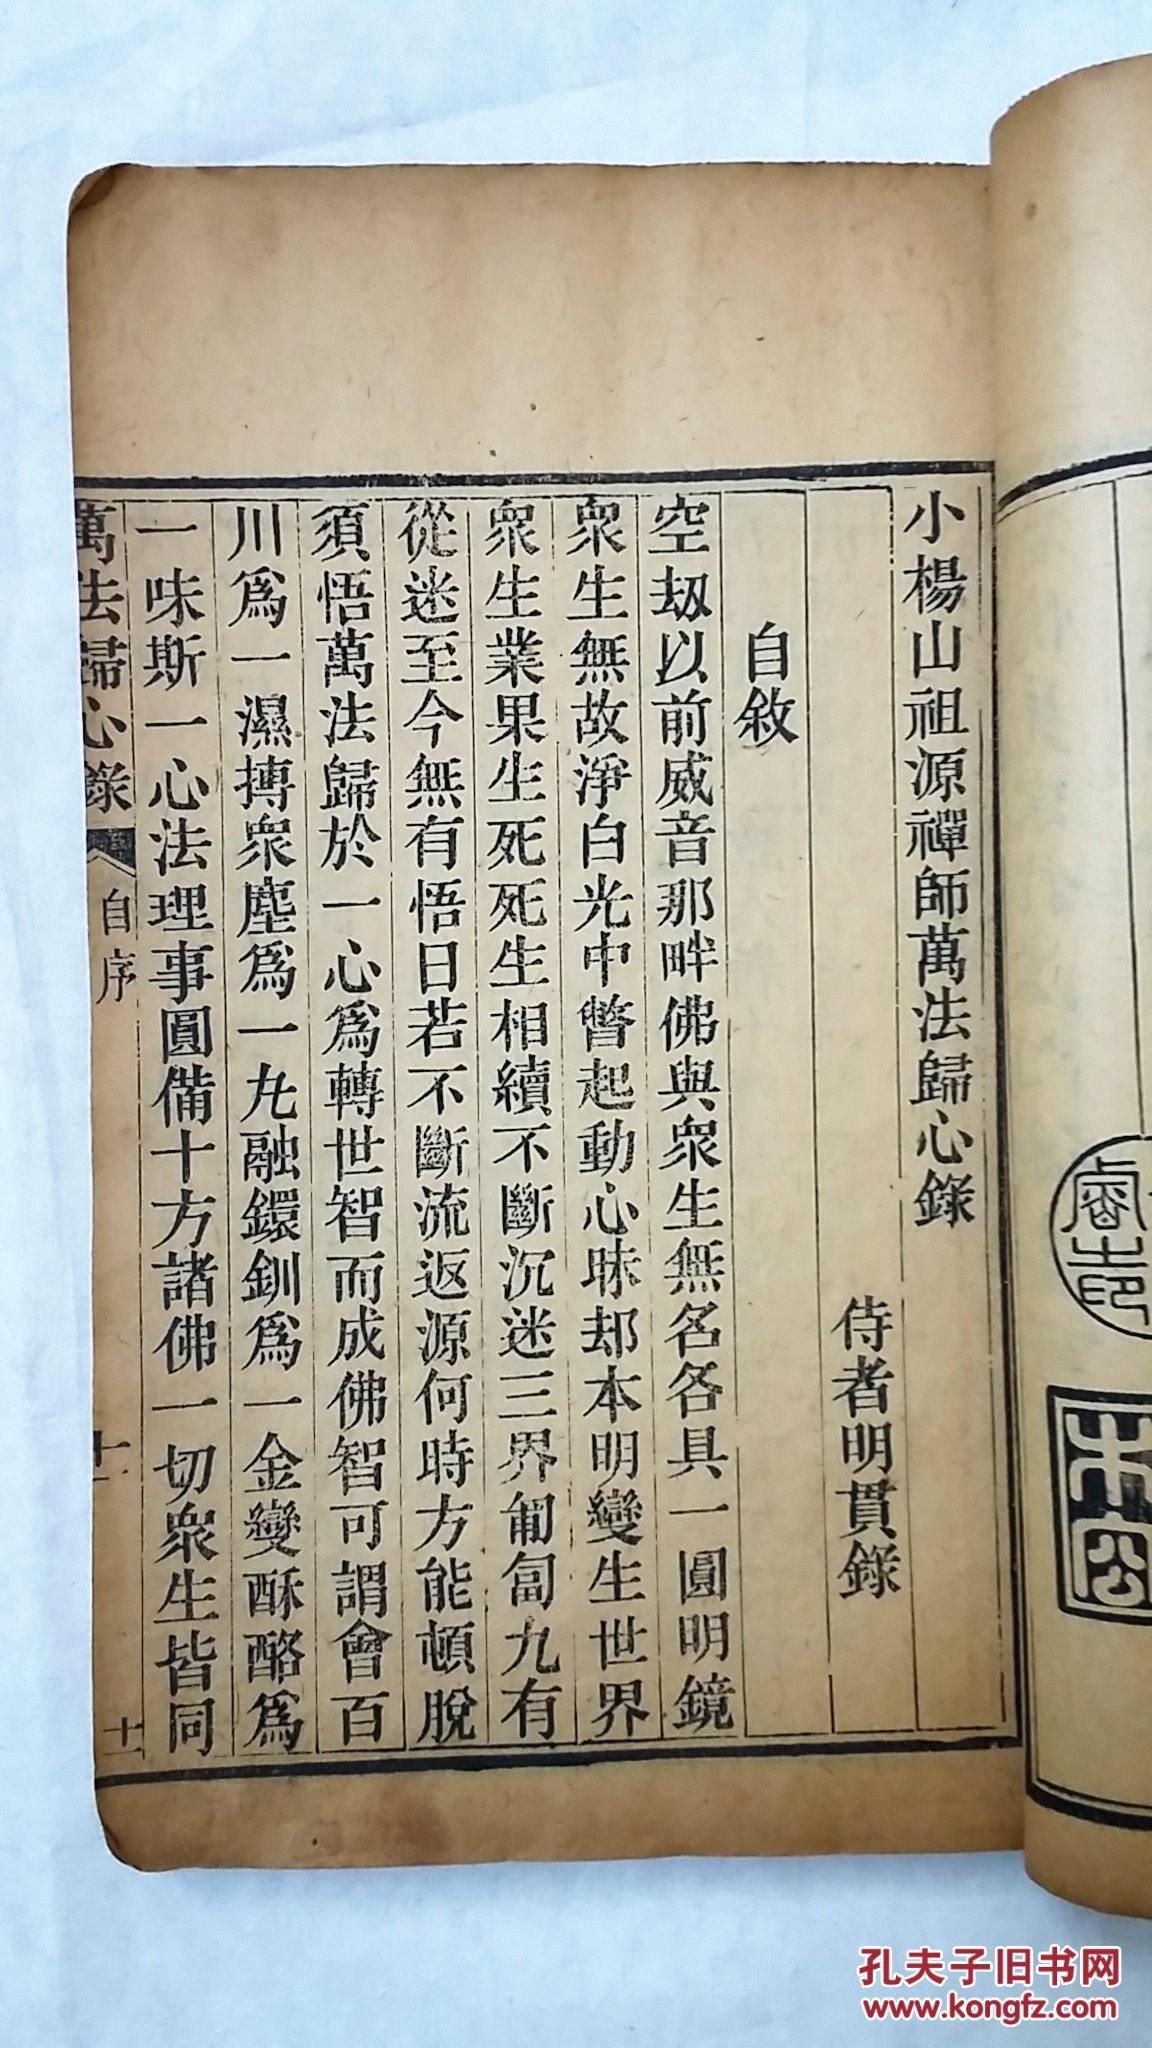 小楊山祖源禪師萬法歸心錄
侍者明貫錄
自敘
空刧以前威音那畔佛與衆生無名各具一圓明鏡
衆生無故淨白光中瞥起動心昧却本明變生世界
衆生業果生死死生相續不斷沉迷三界匍匐九有
從迷至今無有悟日若不斷流返源何時方能頓脫
須悟萬法歸於一心爲轉世智而成佛智可謂會百
川爲一濕摶衆塵爲一丸融鐶釧爲一金變酥酪爲
一味斯一心法理事圓備十方諸佛一切衆生皆同
萬法歸心錄
自序
十一
十
孔夫子旧书网
www.kongfz.com